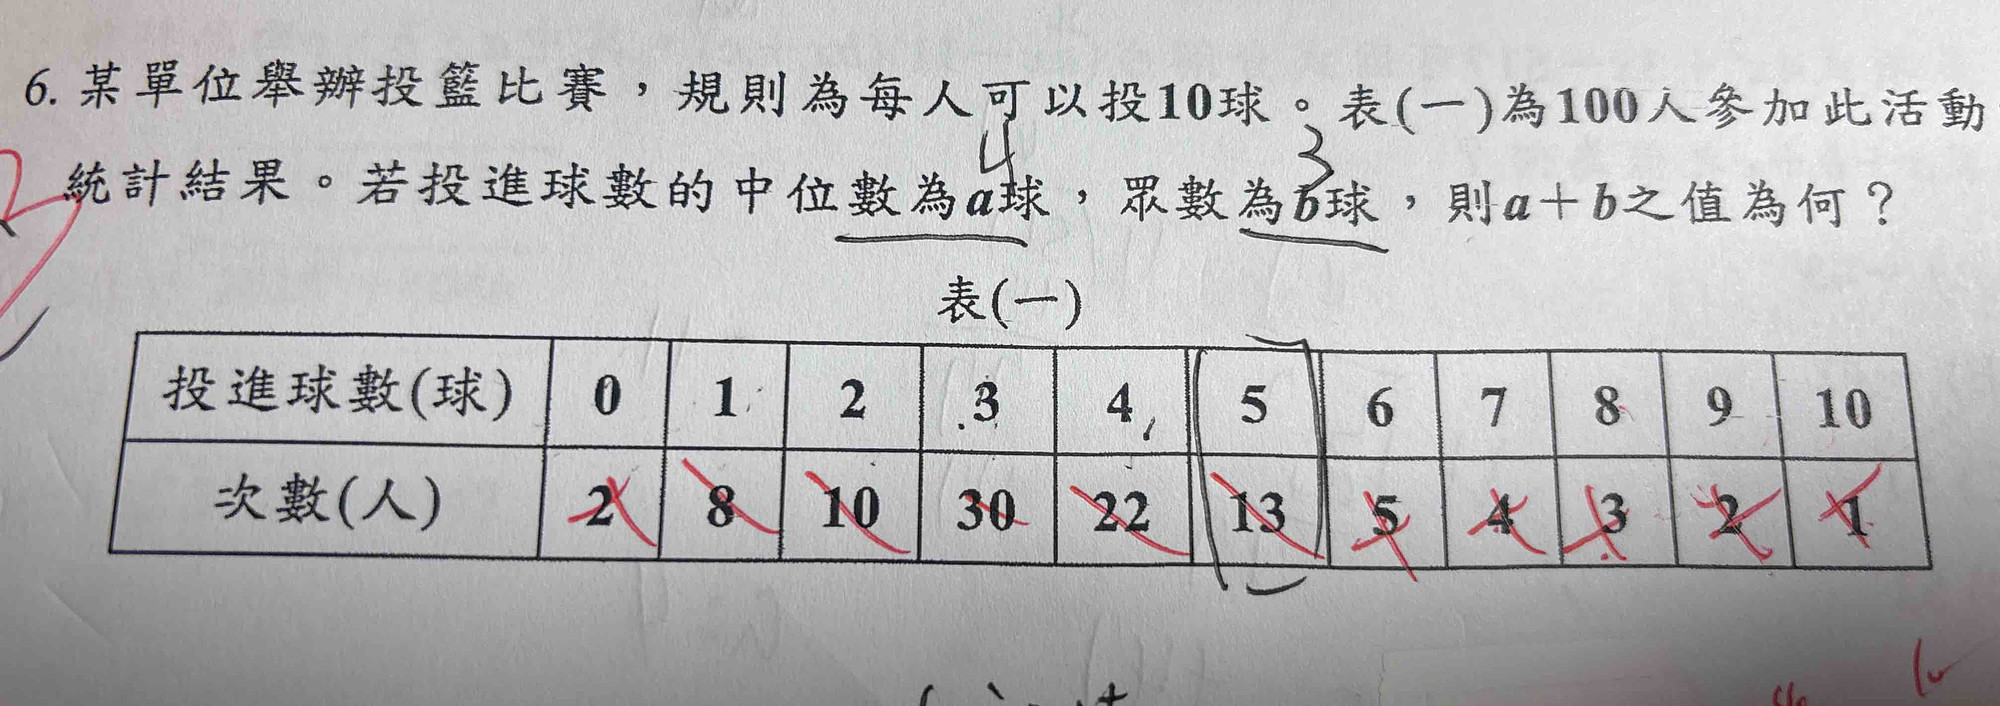 6. 某單位舉辦投籃比賽，規則為每人可以投10球。表(一)為100人參加此活動
4 3
統計結果。若投進球數的中位數為a球，眾數為b球，則a＋b之值為何？
表(一)
投進球數(球) 0 1 2 3 4 5 6 7 8 9 10
次數(人) 2 8 10 30 22 13 5 4 3 2 1